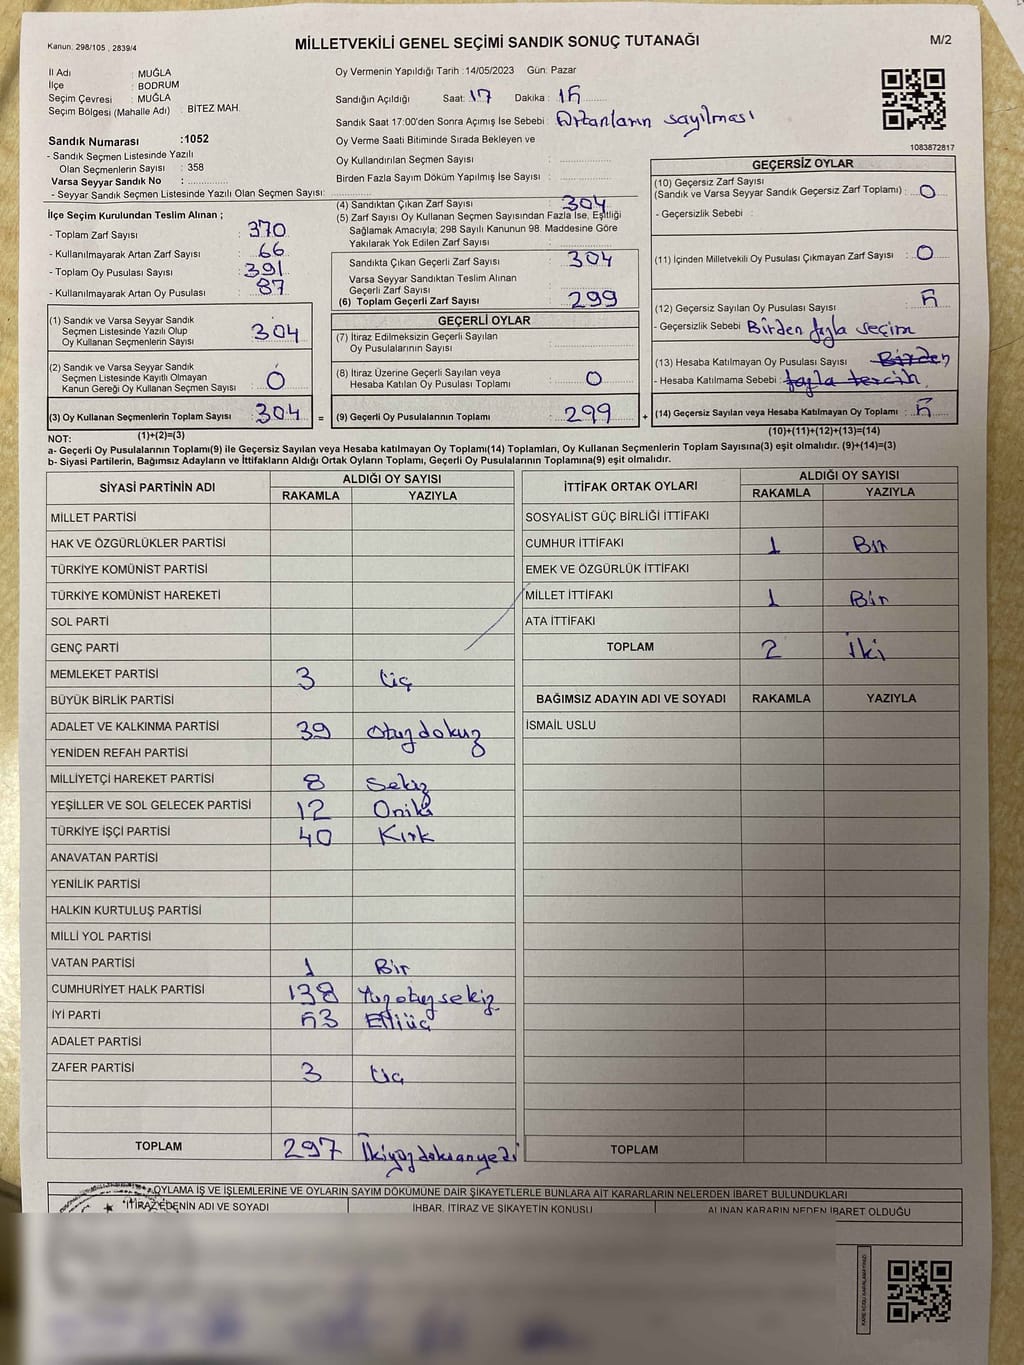 Kanun: 298/105 , 2839/4
MİLLETVEKİLİ GENEL SEÇİMİ SANDIK SONUÇ TUTANAĞI
M/2
İl Adı : MUĞLA
İlçe : BODRUM
Seçim Çevresi : MUĞLA
Seçim Bölgesi (Mahalle Adı) : BİTEZ MAH.
Oy Vermenin Yapıldığı Tarih :14/05/2023 Gün: Pazar
Sandığın Açıldığı Saat: 17 Dakika : 15
Sandık Saat 17:00'den Sonra Açımış İse Sebebi : Artanların sayılması
Oy Verme Saati Bitiminde Sırada Bekleyen ve
Oy Kullandırılan Seçmen Sayısı :
Birden Fazla Sayım Döküm Yapılmış İse Sayısı :
1083872817
Sandık Numarası :1052
- Sandık Seçmen Listesinde Yazılı
Olan Seçmenlerin Sayısı : 358
Varsa Seyyar Sandık No :
- Seyyar Sandık Seçmen Listesinde Yazılı Olan Seçmen Sayısı:
İlçe Seçim Kurulundan Teslim Alınan ;
- Toplam Zarf Sayısı : 370
- Kullanılmayarak Artan Zarf Sayısı : 66
- Toplam Oy Pusulası Sayısı : 391
- Kullanılmayarak Artan Oy Pusulası : 87
(1) Sandık ve Varsa Seyyar Sandık
Seçmen Listesinde Yazılı Olup
Oy Kullanan Seçmenlerin Sayısı : 304
(2) Sandık ve Varsa Seyyar Sandık
Seçmen Listesinde Kayıtlı Olmayan
Kanun Gereği Oy Kullanan Seçmen Sayısı : 0
(3) Oy Kullanan Seçmenlerin Toplam Sayısı : 304 =
(4) Sandıktan Çıkan Zarf Sayısı : 304
(5) Zarf Sayısı Oy Kullanan Seçmen Sayısından Fazla İse, Eşitliği
Sağlamak Amacıyla; 298 Sayılı Kanunun 98. Maddesine Göre
Yakılarak Yok Edilen Zarf Sayısı :
Sandıkta Çıkan Geçerli Zarf Sayısı : 304
Varsa Seyyar Sandıktan Teslim Alınan
Geçerli Zarf Sayısı :
(6) Toplam Geçerli Zarf Sayısı : 299
GEÇERLİ OYLAR
(7) İtiraz Edilmeksizin Geçerli Sayılan
Oy Pusulalarının Sayısı :
(8) İtiraz Üzerine Geçerli Sayılan veya
Hesaba Katılan Oy Pusulası Toplamı : 0
(9) Geçerli Oy Pusulalarının Toplamı : 299 +
GEÇERSİZ OYLAR
(10) Geçersiz Zarf Sayısı
(Sandık ve Varsa Seyyar Sandık Geçersiz Zarf Toplamı) : 0
- Geçersizlik Sebebi :
(11) İçinden Milletvekili Oy Pusulası Çıkmayan Zarf Sayısı : 0
(12) Geçersiz Sayılan Oy Pusulası Sayısı : 5
- Geçersizlik Sebebi : Birden fazla seçim
(13) Hesaba Katılmayan Oy Pusulası Sayısı : Birden
- Hesaba Katılmama Sebebi : fazla tercih
(14) Geçersiz Sayılan veya Hesaba Katılmayan Oy Toplamı : 5
(1)+(2)=(3)
(10)+(11)+(12)+(13)=(14)
NOT:
a- Geçerli Oy Pusulalarının Toplamı(9) ile Geçersiz Sayılan veya Hesaba katılmayan Oy Toplamı(14) Toplamları, Oy Kullanan Seçmenlerin Toplam Sayısına(3) eşit olmalıdır. (9)+(14)=(3)
b- Siyasi Partilerin, Bağımsız Adayların ve İttifakların Aldığı Ortak Oyların Toplamı, Geçerli Oy Pusulalarının Toplamına(9) eşit olmalıdır.
SİYASİ PARTİNİN ADI
ALDIĞI OY SAYISI
RAKAMLA YAZIYLA
MİLLET PARTİSİ
HAK VE ÖZGÜRLÜKLER PARTİSİ
TÜRKİYE KOMÜNİST PARTİSİ
TÜRKİYE KOMÜNİST HAREKETİ
SOL PARTİ
GENÇ PARTİ
MEMLEKET PARTİSİ 3 üç
BÜYÜK BİRLİK PARTİSİ
ADALET VE KALKINMA PARTİSİ 39 otuzdokuz
YENİDEN REFAH PARTİSİ
MİLLİYETÇİ HAREKET PARTİSİ 8 Sekiz
YEŞİLLER VE SOL GELECEK PARTİSİ 12 Oniki
TÜRKİYE İŞÇİ PARTİSİ 40 Kırk
ANAVATAN PARTİSİ
YENİLİK PARTİSİ
HALKIN KURTULUŞ PARTİSİ
MİLLİ YOL PARTİSİ
VATAN PARTİSİ 1 Bir
CUMHURİYET HALK PARTİSİ 138 Yüzotuzsekiz
İYİ PARTİ 53 Elliüç
ADALET PARTİSİ
ZAFER PARTİSİ 3 Üç
TOPLAM 297 İkiyüzdoksanyedi
İTTİFAK ORTAK OYLARI
ALDIĞI OY SAYISI
RAKAMLA YAZIYLA
SOSYALİST GÜÇ BİRLİĞİ İTTİFAKI
CUMHUR İTTİFAKI 1 Bir
EMEK VE ÖZGÜRLÜK İTTİFAKI
MİLLET İTTİFAKI 1 Bir
ATA İTTİFAKI
TOPLAM 2 İki
BAĞIMSIZ ADAYIN ADI VE SOYADI RAKAMLA YAZIYLA
İSMAİL USLU
TOPLAM
OYLAMA İŞ VE İŞLEMLERİNE VE OYLARIN SAYIM DÖKÜMÜNE DAİR ŞİKAYETLERLE BUNLARA AİT KARARLARIN NELERDEN İBARET BULUNDUKLARI
İTİRAZ EDENİN ADI VE SOYADI İHBAR, İTİRAZ VE ŞİKAYETİN KONUSU ALINAN KARARIN NEDEN İBARET OLDUĞU